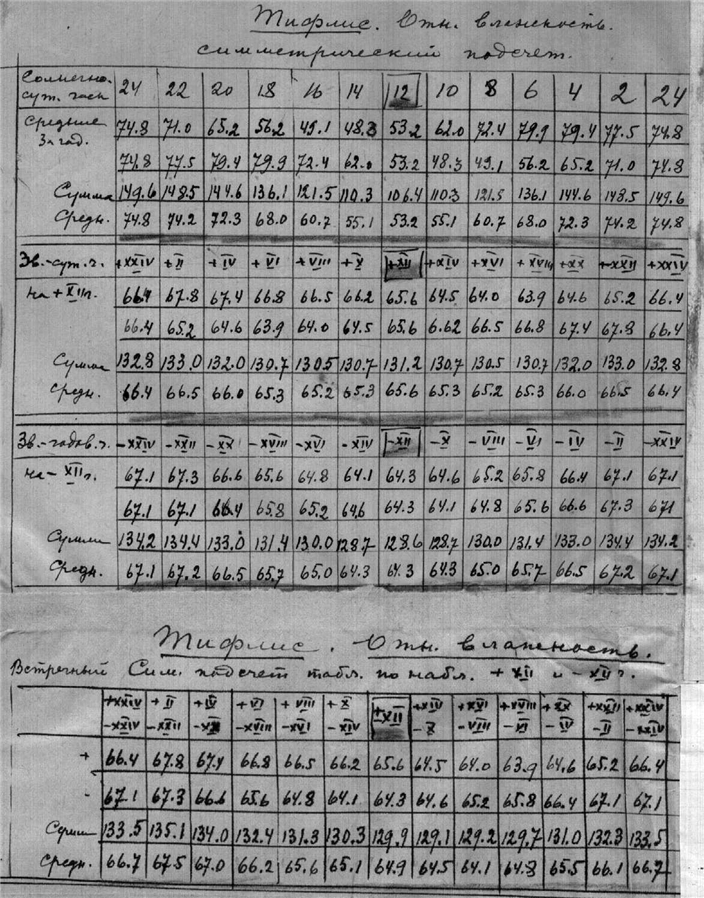 Тифлис. Отн. влажность.
симметрический подсчет.
Солнечно. сут. часы 24 22 20 18 16 14 12 10 8 6 4 2 24
Средние за год. 74.8 71.0 65.2 56.2 49.1 48.3 53.2 62.0 72.4 79.9 79.4 77.5 74.8
74.8 77.5 79.4 79.9 72.4 62.0 53.2 48.3 49.1 56.2 65.2 71.0 74.8
Сумма 149.6 148.5 144.6 136.1 121.5 110.3 106.4 110.3 121.5 136.1 144.6 148.5 149.6
Средн. 74.8 74.2 72.3 68.0 60.7 55.1 53.2 55.1 60.7 68.0 72.3 74.2 74.8
Зв.-сут. ч. +XXIV +II +IV +VI +VIII +X +XII +XIV +XVI +XVIII +XX +XXII +XXIV
на +XII ч. 66.4 67.8 67.4 66.8 66.5 66.2 65.6 64.5 64.0 63.9 64.6 65.2 66.4
66.4 65.2 64.6 63.9 64.0 64.5 65.6 6.62 66.5 66.8 67.4 67.8 66.4
Сумма 132.8 133.0 132.0 130.7 130.5 130.7 131.2 130.7 130.5 130.7 132.0 133.0 132.8
Средн. 66.4 66.5 66.0 65.3 65.2 65.3 65.6 65.3 65.2 65.3 66.0 66.5 66.4
Зв.-годов. ч. -XXIV -XXII -XX -XVIII -XVI -XIV -XII -X -VIII -VI -IV -II -XXIV
на -XII ч. 67.1 67.3 66.6 65.6 64.8 64.1 64.3 64.6 65.2 65.8 66.4 67.1 67.1
67.1 67.1 66.4 65.8 65.2 64.6 64.3 64.1 64.8 65.6 66.6 67.3 67.1
Сумма 134.2 134.4 133.0 131.4 130.0 128.7 128.6 128.7 130.0 131.4 133.0 134.4 134.2
Средн. 67.1 67.2 66.5 65.7 65.0 64.3 64.3 64.3 65.0 65.7 66.5 67.2 67.1
Тифлис. Отн. влажность.
Встречный Сим. подсчет табл. по набл. +XII и -XII ч.
+XXIV +II +IV +VI +VIII +X ±XII +XIV +XVI +XVIII +XX +XXII +XXIV
-XXIV -XXII -XX -XVIII -XVI -XIV -X -VIII -VI -IV -II -XXIV
+ 66.4 67.8 67.4 66.8 66.5 66.2 65.6 64.5 64.0 63.9 64.6 65.2 66.4
- 67.1 67.3 66.6 65.6 64.8 64.1 64.3 64.6 65.2 65.8 66.4 67.1 67.1
Сумм 133.5 135.1 134.0 132.4 131.3 130.3 129.9 129.1 129.2 129.7 131.0 132.3 133.5
Средн. 66.7 67.5 67.0 66.2 65.6 65.1 64.9 64.5 64.1 64.8 65.5 66.1 66.7